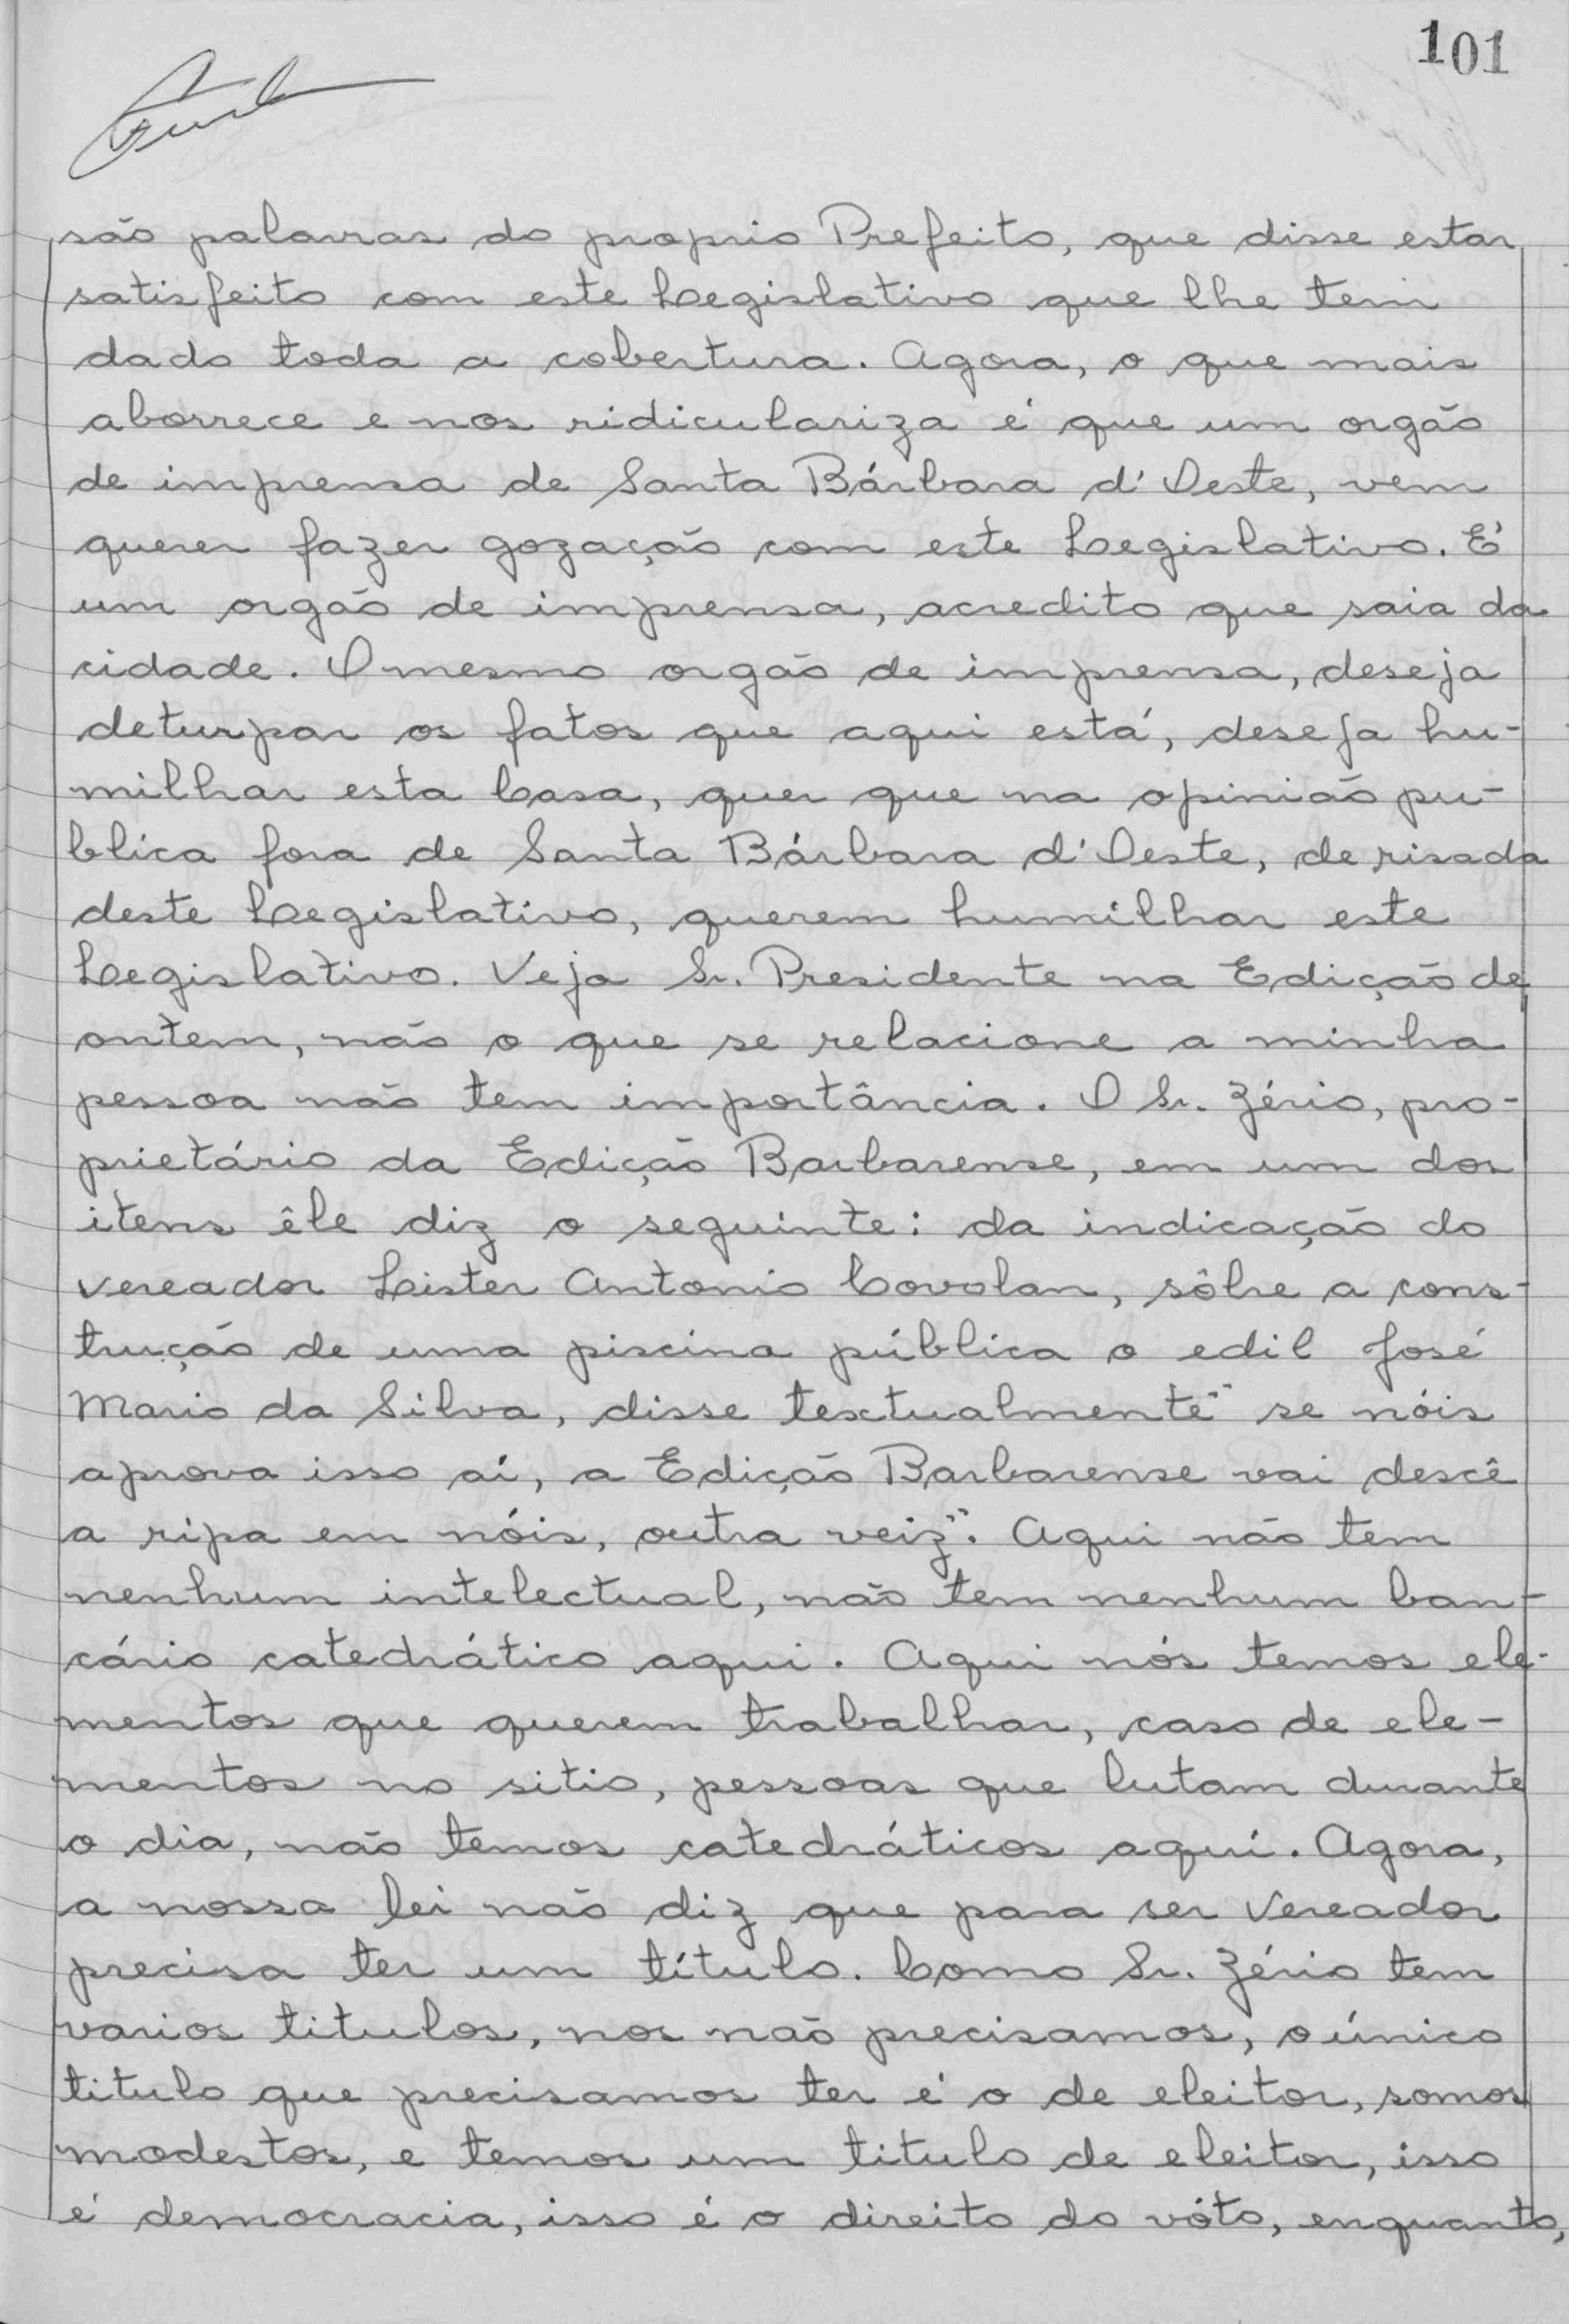 101
são palavras do proprio Prefeito, que disse estar
satisfeito com este Legislativo que lhe tem
dado toda a cobertura. Agora, o que mais
aborrece e nos ridiculariza é que um orgão
de imprensa de Santa Bárbara d'Oeste, vem
querer fazer gozação com este Legislativo. É
um orgão de imprensa, acredito que saia da
cidade. O mesmo orgão de imprensa, deseja
deturpar os fatos que aqui está, deseja hu-
milhar esta Casa, quer que na opinião pu-
blica fora de Santa Bárbara d'Oeste, de risada
deste Legislativo, querem humilhar este
Legislativo. Veja Sr. Presidente na Edição de
ontem, não o que se relacione a minha
pessoa não tem importância. O Sr. Zério, pro-
prietário da Edição Barbarense, em um dos
itens êle diz o seguinte: da indicação do
vereador Lister Antonio Covolan, sôbre a cons-
trução de uma piscina pública o edil José
Mario da Silva, disse textualmente "se nóis
aprova isso aí, a Edição Barbarense vai descê
a ripa em nóis, outra veiz". Aqui não tem
nenhum intelectual, não tem nenhum ban-
cário catedrático aqui. Aqui nós temos ele-
mentos que querem trabalhar, caso de ele-
mentos no sitio, pessoas que lutam durante
o dia, não temos catedráticos aqui. Agora,
a nossa lei não diz que para ser Vereador
precisa ter um título. Como Sr. Zério tem
varios titulos, nos não precisamos, o único
titulo que precisamos ter é o de eleitor, somos
modestos, e temos um titulo de eleitor, isso
é democracia, isso é o direito do vóto, enquanto,